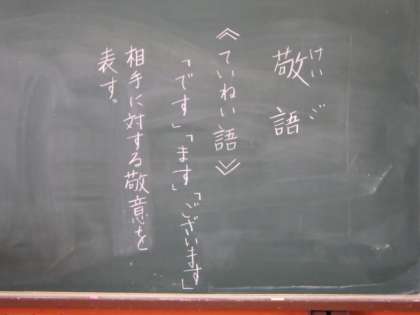 敬語
けいご
《ていねい語》
「です」「ます」「ございます」
相手に対する敬意を
表す。